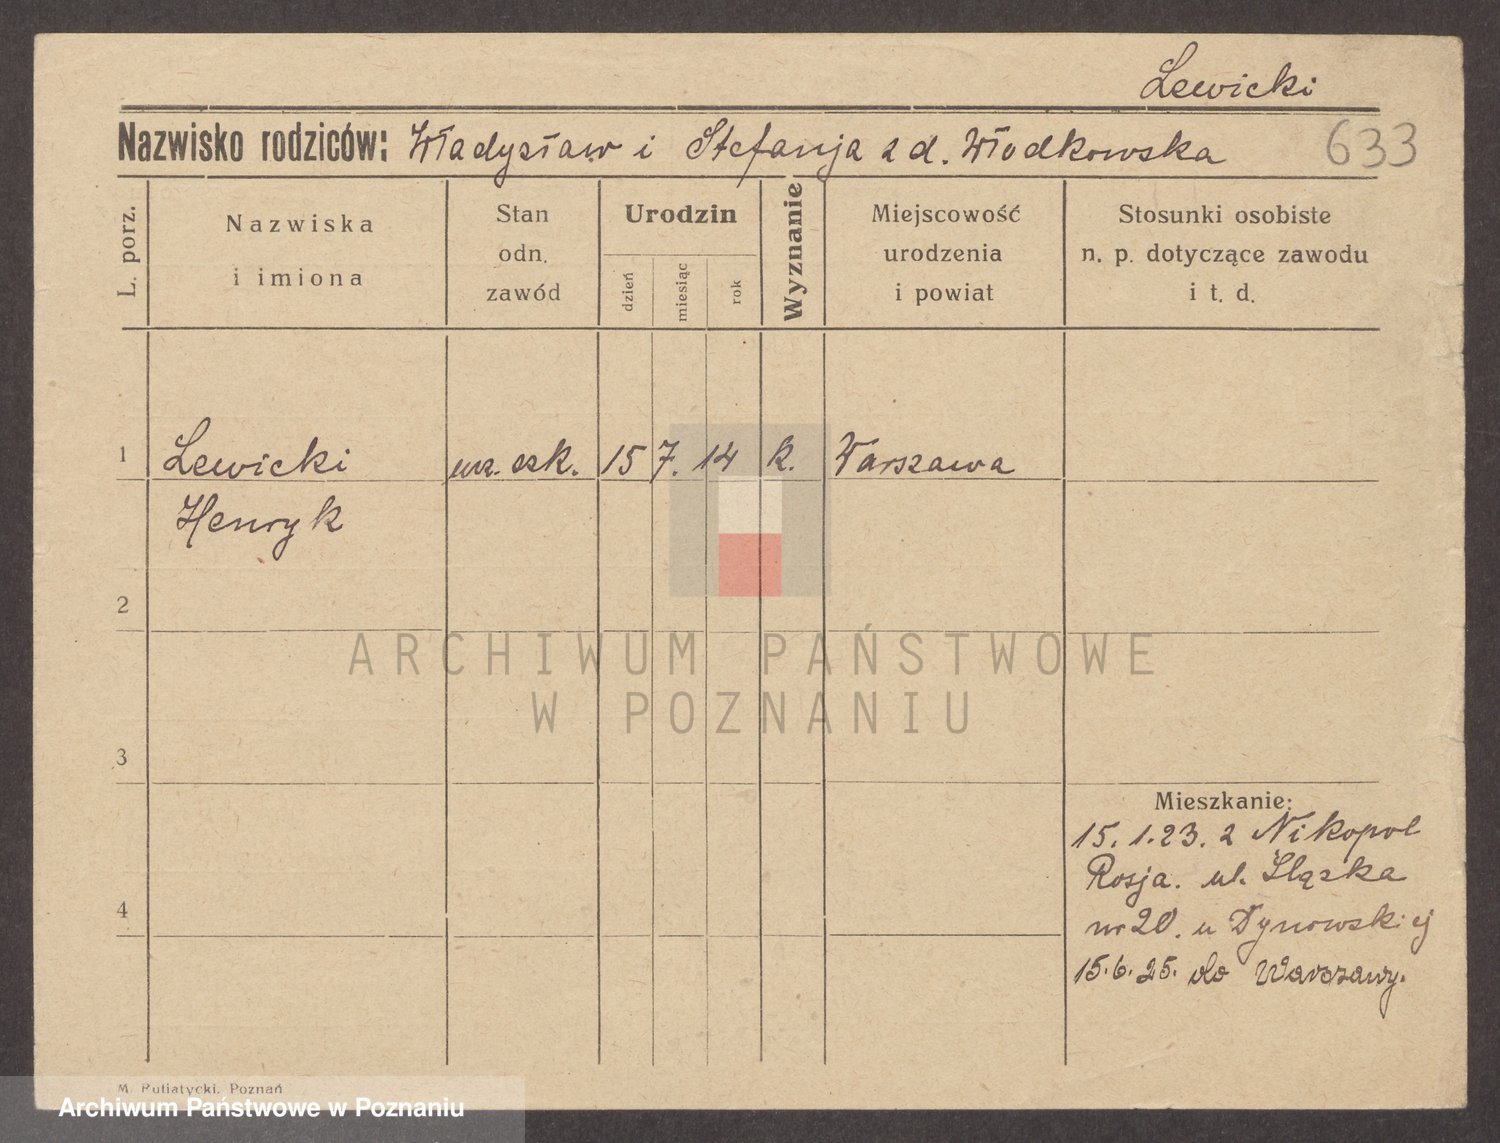 Lewicki
Nazwisko rodziców: Władysław i Stefanja z d. Włodkowska 633
L. porz.
Nazwiska
i imiona
Stan
odn.
zawód
Urodzin
dzień
miesiąc
rok
Wyznanie
Miejscowość
urodzenia
i powiat
Stosunki osobiste
n. p. dotyczące zawodu
i t. d.
1 Lewicki ucz. szk. 15 7. 14 k. Warszawa
Henryk
2
3
4
ARCHIWUM PAŃSTWOWE
W POZNANIU
Mieszkanie:
15. 1. 23. z Nikopol
Rosja. ul. Śląska
nr 20. u Dynowskiej
15. 6. 25. do Warszawy.
M. Putiatycki. Poznań
Archiwum Państwowe w Poznaniu